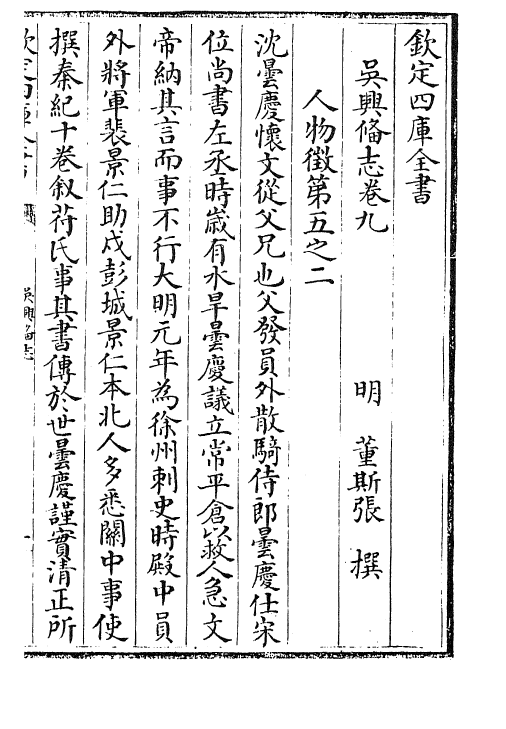 欽定四庫全書
吳興備志卷九
明 董斯張 撰
人物徵第五之二
沈曇慶懷文從父兄也父發員外散騎侍郎曇慶仕宋
位尚書左丞時歲有水旱曇慶議立常平倉以救人急文
帝納其言而事不行大明元年為徐州刺史時殿中員
外將軍裴景仁助戍彭城景仁本北人多悉關中事使
撰秦紀十卷叙苻氏事其書傳於世曇慶謹實清正所
欽定四庫全書
吳興備志